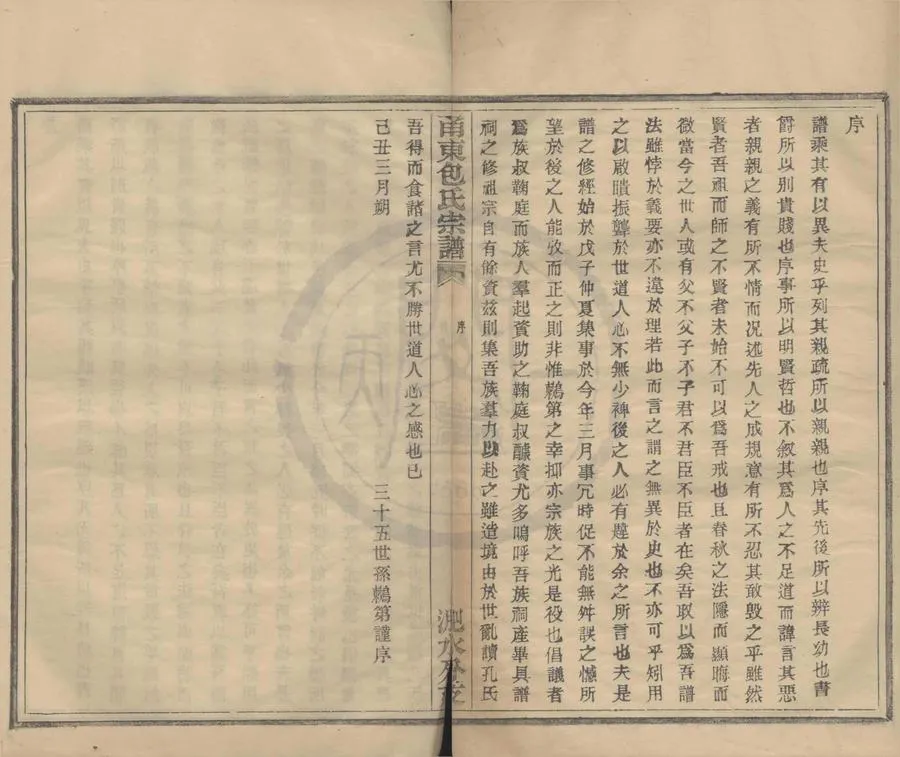 序
譜乘其有以異夫史乎列其親疏所以親親也序其先後所以辨長幼也書
爵所以別貴賤也序事所以明賢哲也不敘其爲人之不足道而諱言其惡
者親親之義有所不情而况述先人之成規意有所不忍其敢毀之乎雖然
賢者吾祖而師之不賢者未始不可以爲吾戒也且春秋之法隱而顯晦而
微當今之世人或有父不父子不子君不君臣不臣者在矣吾取以爲吾譜
法雖悖於義要亦不違於理若此而言之謂之無異於史也不亦可乎矧用
之以啟瞶振聾於世道人心不無少裨後之人必有韙於余之所言也夫是
譜之修經始於戊子仲夏集事於今年三月事冗時促不能無舛誤之憾所
望於後之人能攷而正之則非惟鶼第之幸抑亦宗族之光是役也倡議者
爲族叔鞠庭而族人羣起資助之鞠庭叔醵資尤多嗚呼吾族祠產畢具譜
祠之修祖宗自有餘資茲則集吾族羣力以赴之雖造境由於世亂讀孔氏
甬東包氏宗譜
序
吾得而食諸之言尤不勝世道人心之感也已
己丑三月朔
三十五世孫鶼第謹序